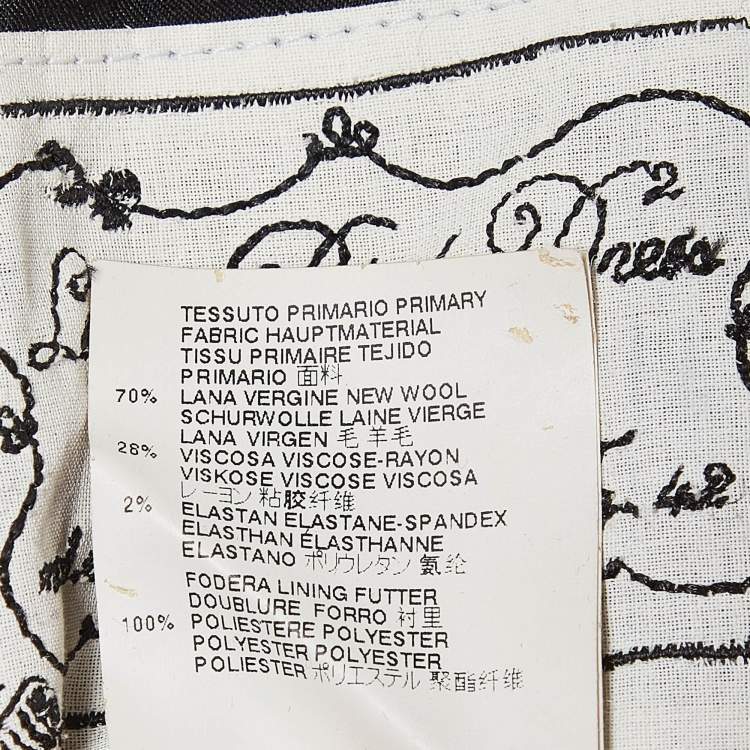 2
Dress
TESSUTO PRIMARIO PRIMARY
FABRIC HAUPTMATERIAL
TISSU PRIMAIRE TEJIDO
PRIMARIO 面料
70% LANA VERGINE NEW WOOL
SCHURWOLLE LAINE VIERGE
LANA VIRGEN 毛 羊毛
28% VISCOSA VISCOSE-RAYON
VISKOSE VISCOSE VISCOSA
レーヨン 粘胶纤维
2% ELASTAN ELASTANE-SPANDEX
ELASTHAN ÉLASTHANNE
ELASTANO ポリウレタン 氨纶
FODERA LINING FUTTER
DOUBLURE FORRO 衬里
100% POLIESTERE POLYESTER
POLYESTER POLYESTER
POLIESTER ポリエステル 聚酯纤维
42